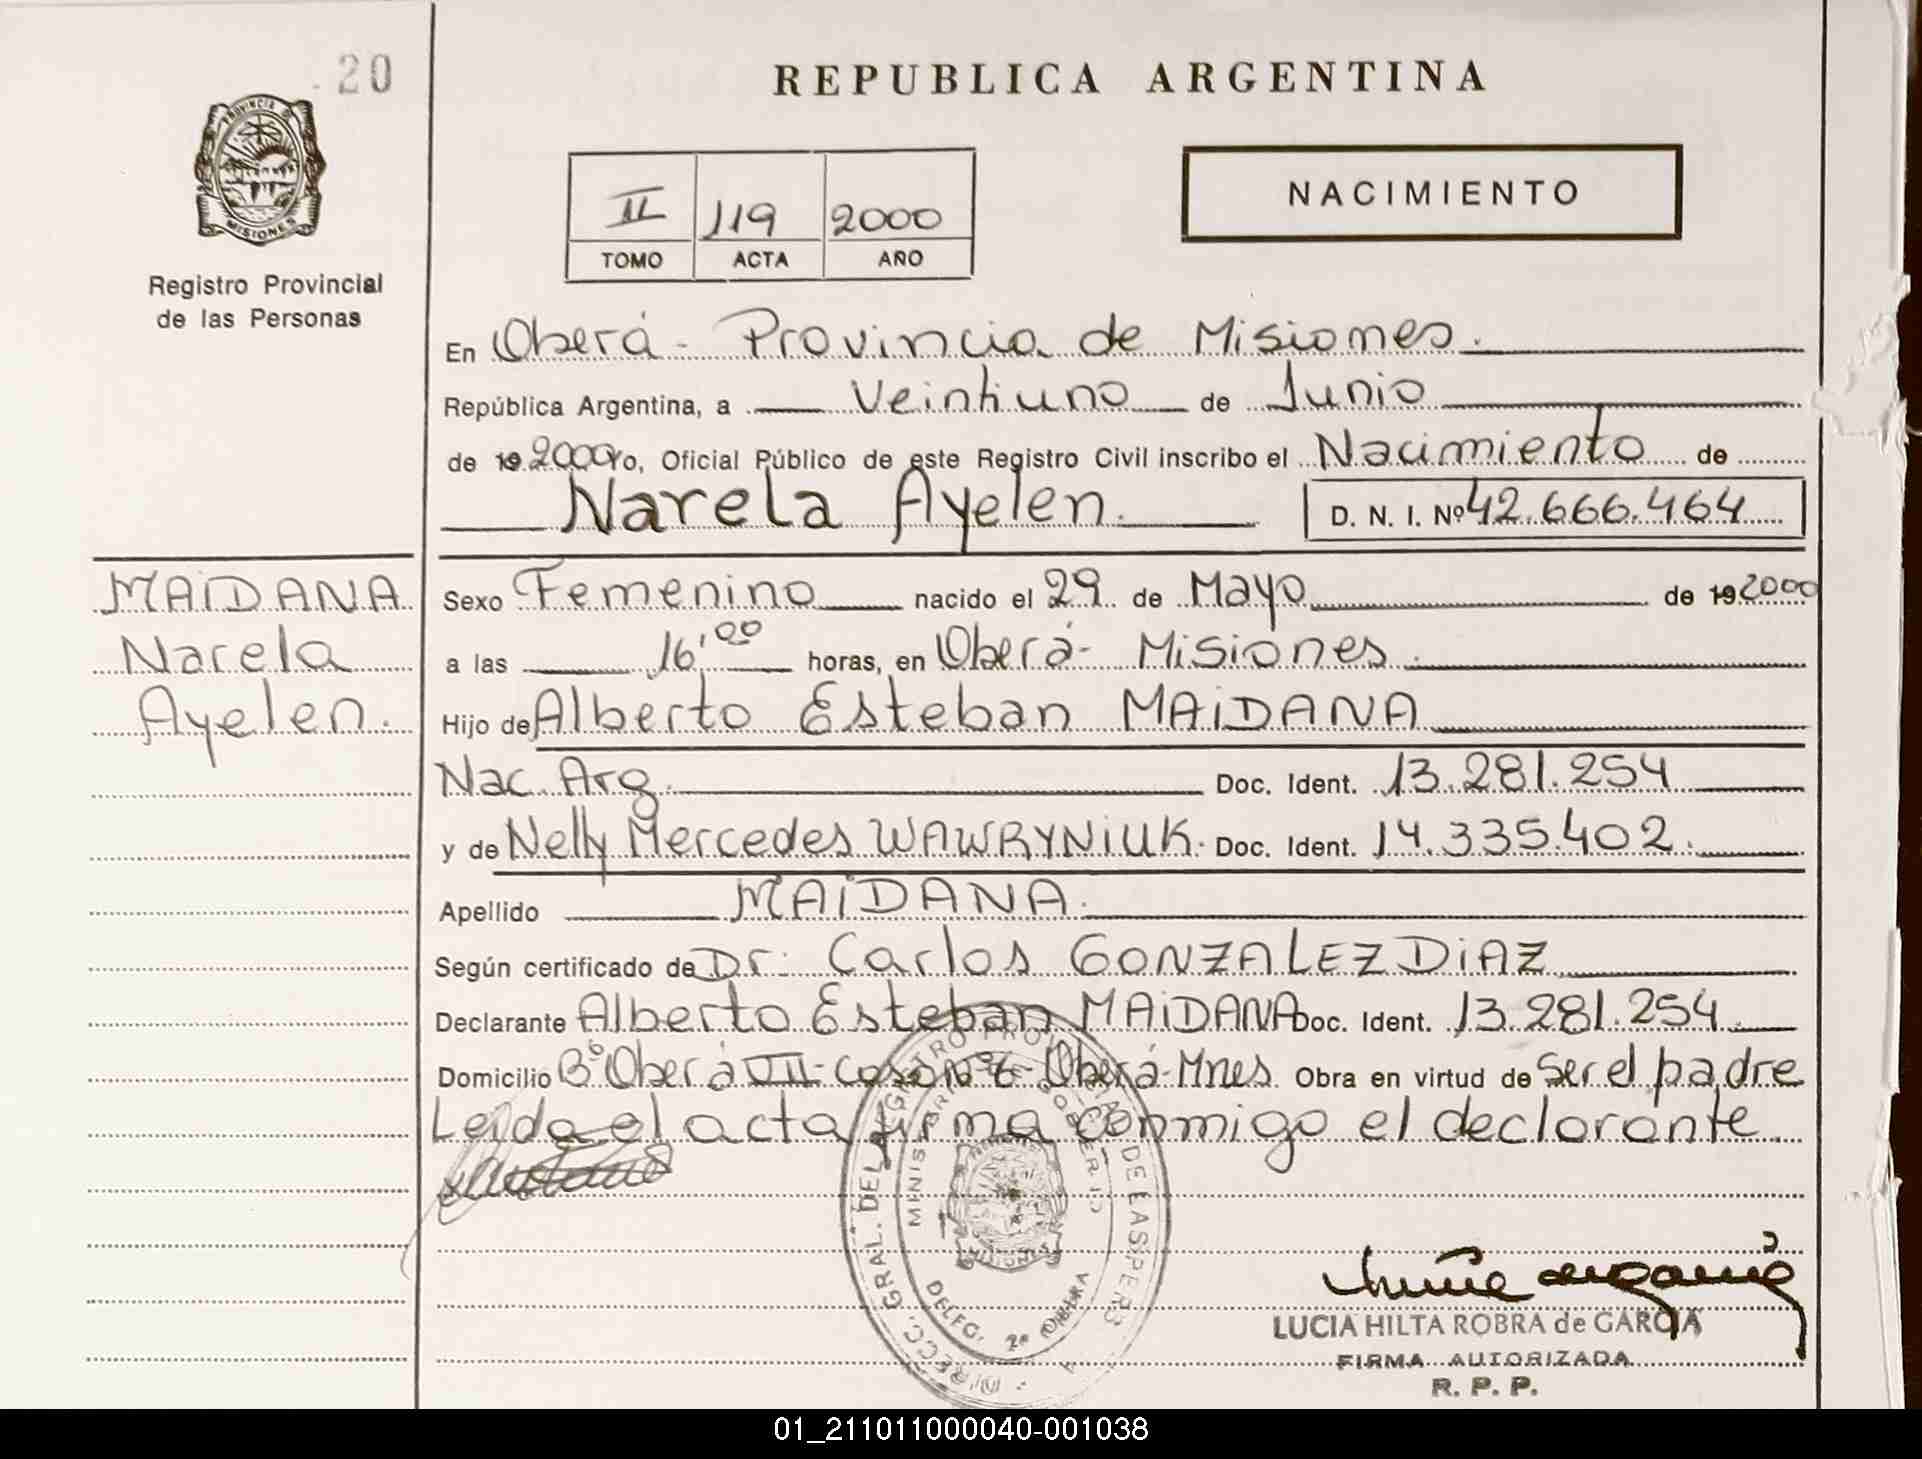 20
REPUBLICA ARGENTINA
II 119 2000
TOMO ACTA AÑO
NACIMIENTO
PROVINCIA DE
MISIONES
Registro Provincial
de las Personas
En Oberá - Provincia de Misiones.
República Argentina, a Veintiuno de Junio
de 19 2000 Yo, Oficial Público de este Registro Civil inscribo el Nacimiento de
Narela Ayelen. D. N. I. Nº 42.666.464
MAIDANA
Narela
Ayelen.
Sexo Femenino nacido el 29 de Mayo de 19 2000
a las 16,00 horas, en Oberá - Misiones.
Hijo de Alberto Esteban MAIDANA
Nac. Arg. Doc. Ident. 13.281.254
y de Nelly Mercedes WAWRYNIUK. Doc. Ident. 14.335.402.
Apellido MAIDANA.
Según certificado de Dr. Carlos GONZALEZ DIAZ
Declarante Alberto Esteban MAIDANA Doc. Ident. 13.281.254.
Domicilio Bº Oberá VII - Casa Nº 6 - Oberá - Mnes. Obra en virtud de ser el padre
Leida el acta firma conmigo el declarante.
DIRECC. GRAL. DEL REGISTRO PROVINCIAL DE LAS PERS
MINISTERIO DE GOBIERNO
MISIONES
DELEG. 2ª OBERA
LUCIA HILTA ROBRA de GARCIA
FIRMA AUTORIZADA
R. P. P.
01_211011000040-001038